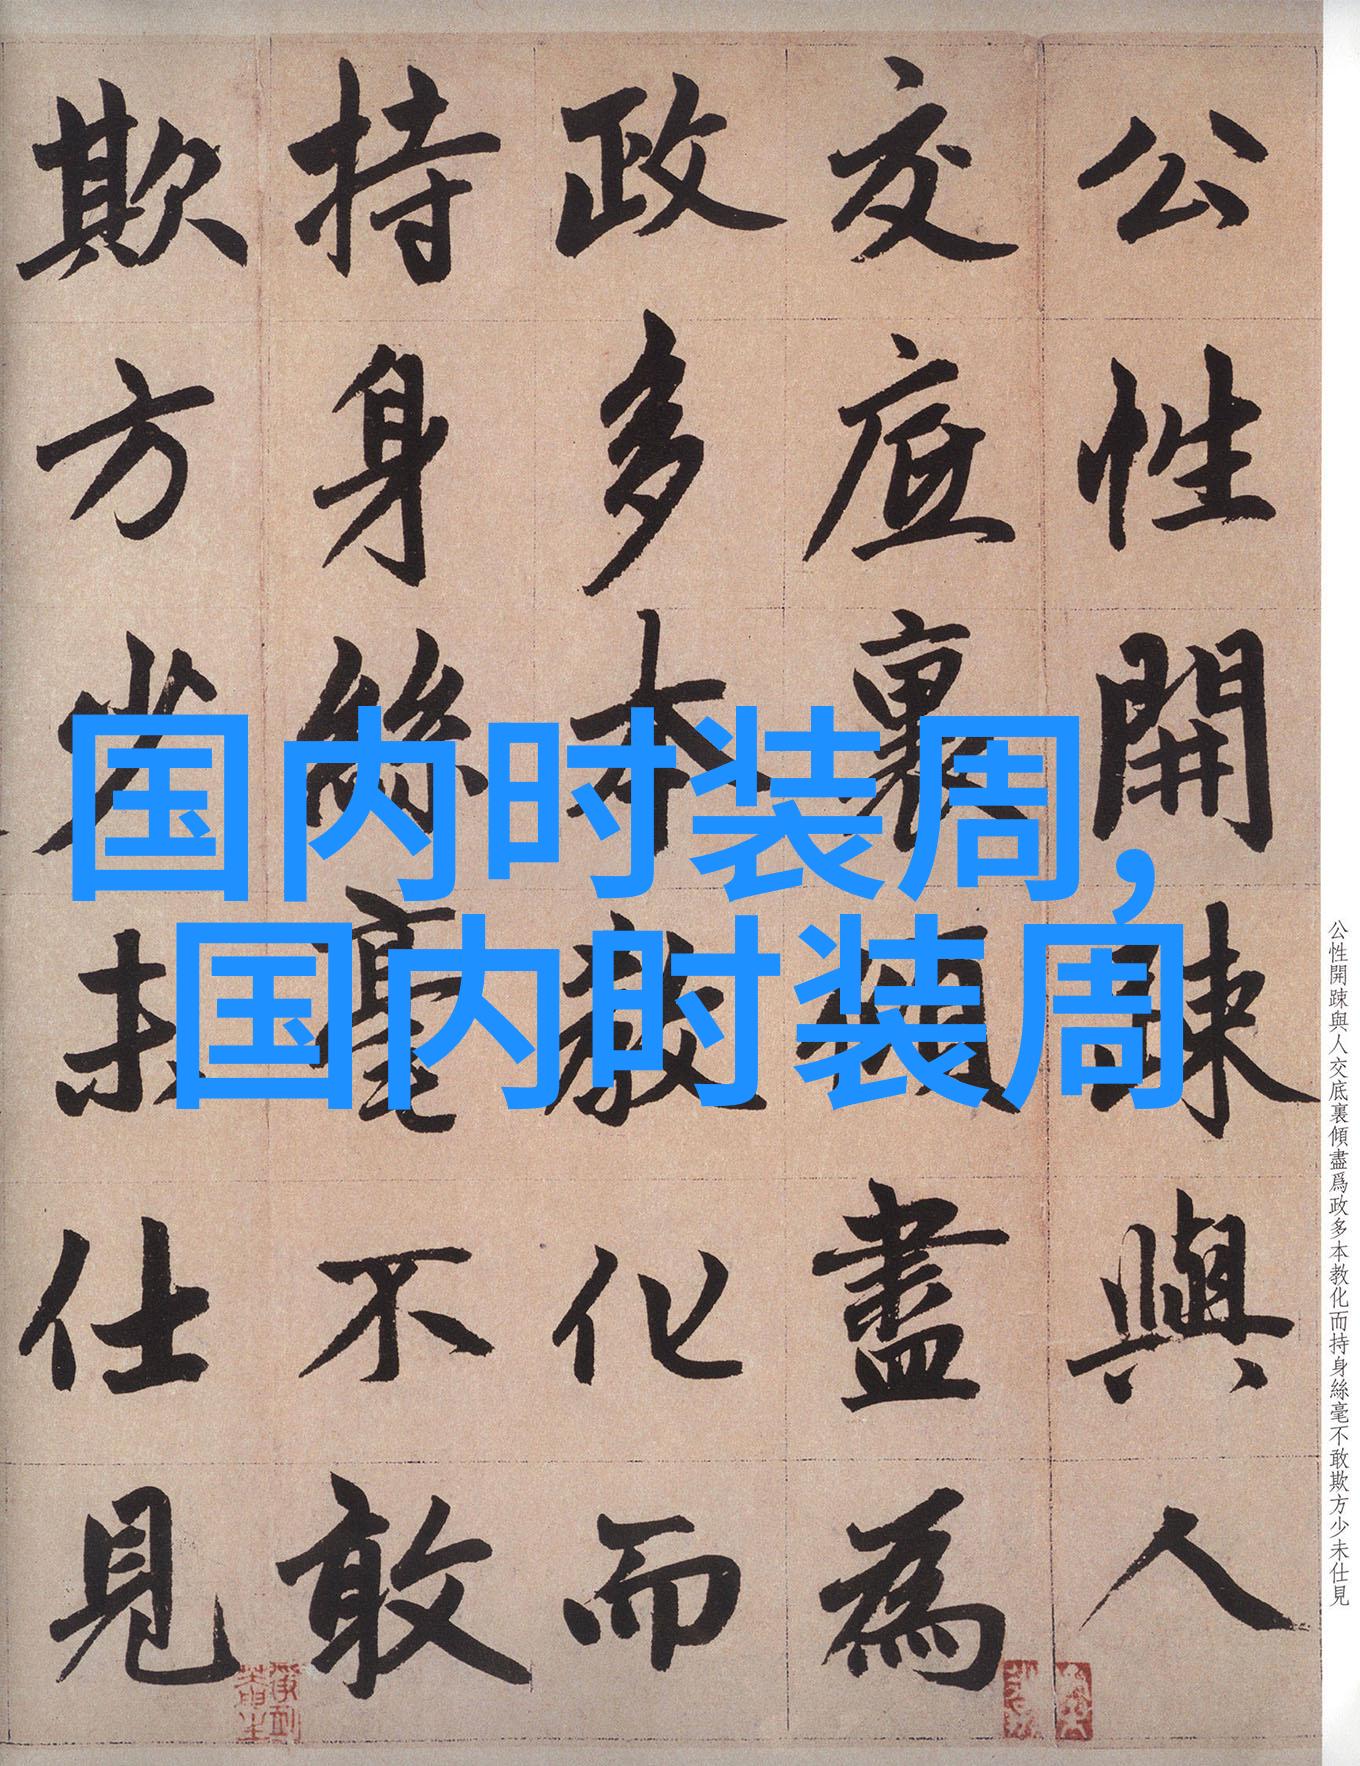 公性開踈與人
交底裏傾盡為
政多本教化而
持身絲毫不敢
欺方少未仕見
国内时装周，
国内时装周
公性開踈與人交底裏傾盡爲政多本教化而持身絲毫不敢欺方少未仕見